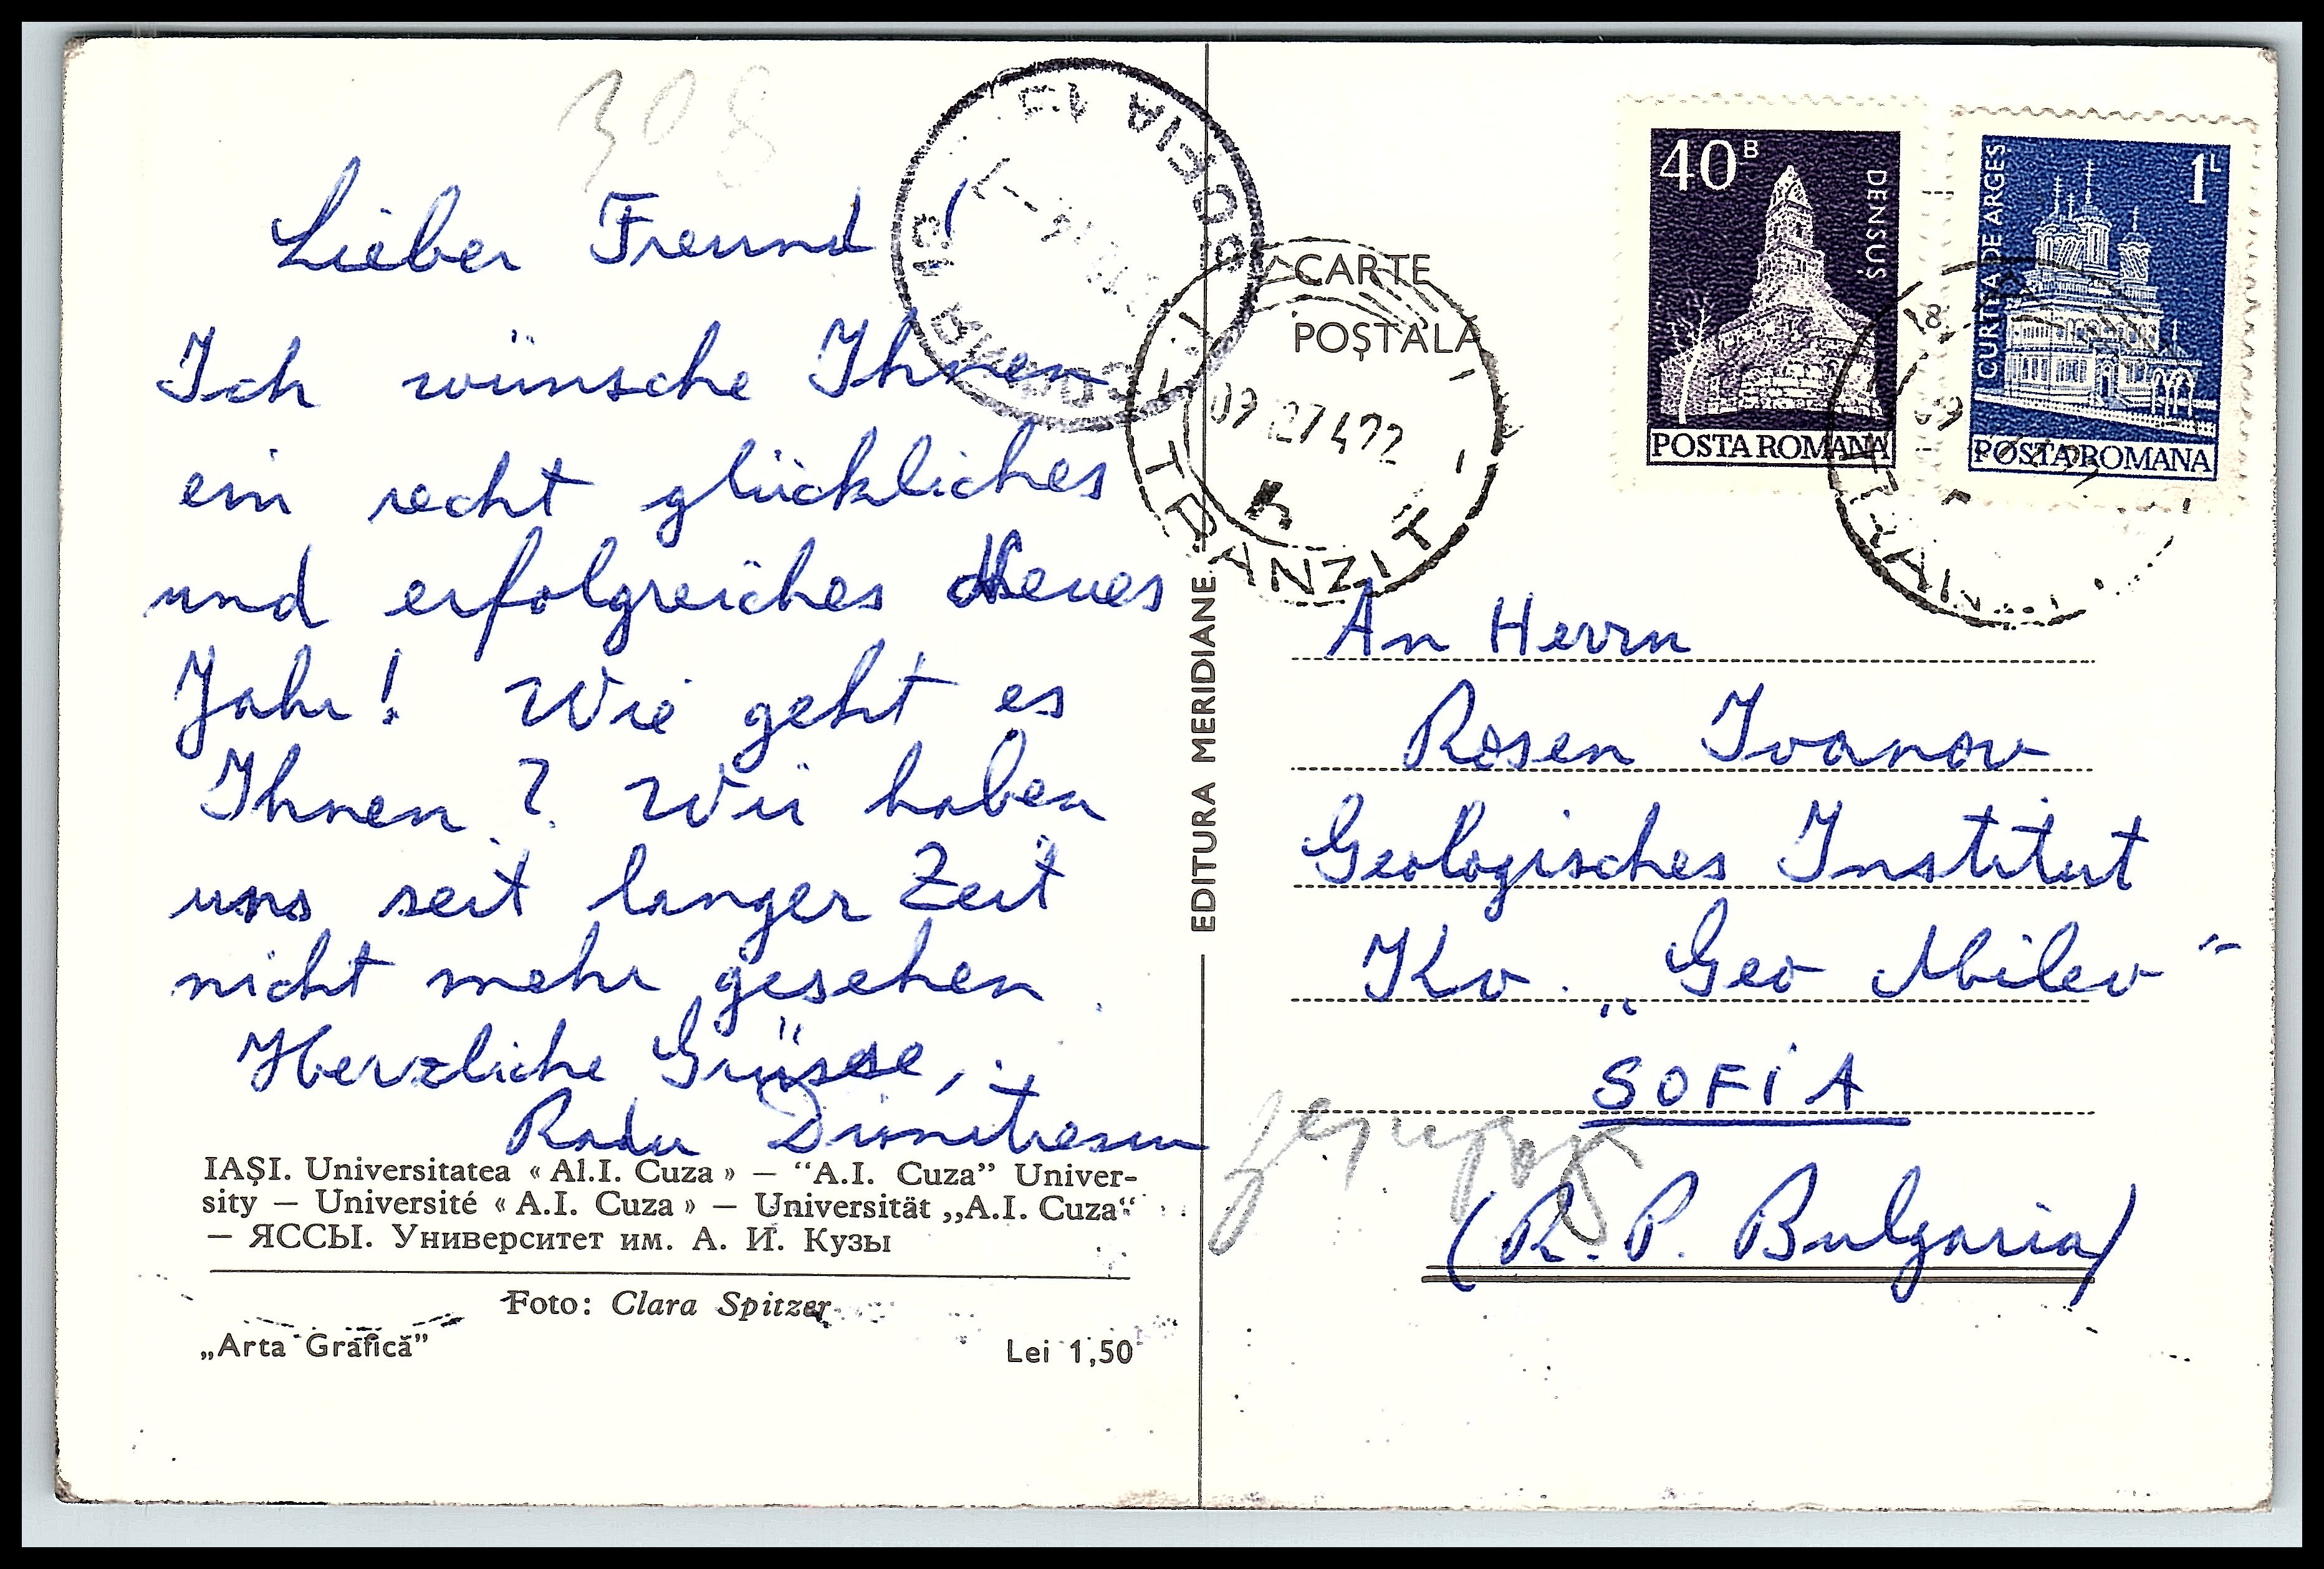 308
Lieber Freund!
Ich wünsche Ihnen
ein recht glückliches
und erfolgreiches Neues
Jahr! Wie geht es
Ihnen? Wir haben
uns seit langer Zeit
nicht mehr gesehen.
Herzliche Grüsse,
Radu Dimitrescu
IAȘI. Universitatea « Al.I. Cuza » — “A.I. Cuza” Univer-
sity — Université « A.I. Cuza » — Universität „A.I. Cuza“
— ЯССЫ. Университет им. А. И. Кузы
Foto: Clara Spitzer
„Arta Grafică”
Lei 1,50
EDITURA MERIDIANE
SOFIA 15
СОФИЯ
CARTE
POȘTALĂ
TRANZIT
40B
DENSUȘ
POSTA ROMANA
1L
CURTEA DE ARGES
POSTA ROMANA
An Herrn
Rosen Ivanov
Geologisches Institut
Kv. „Geo Milev“
SOFIA
(R. P. Bulgaria)